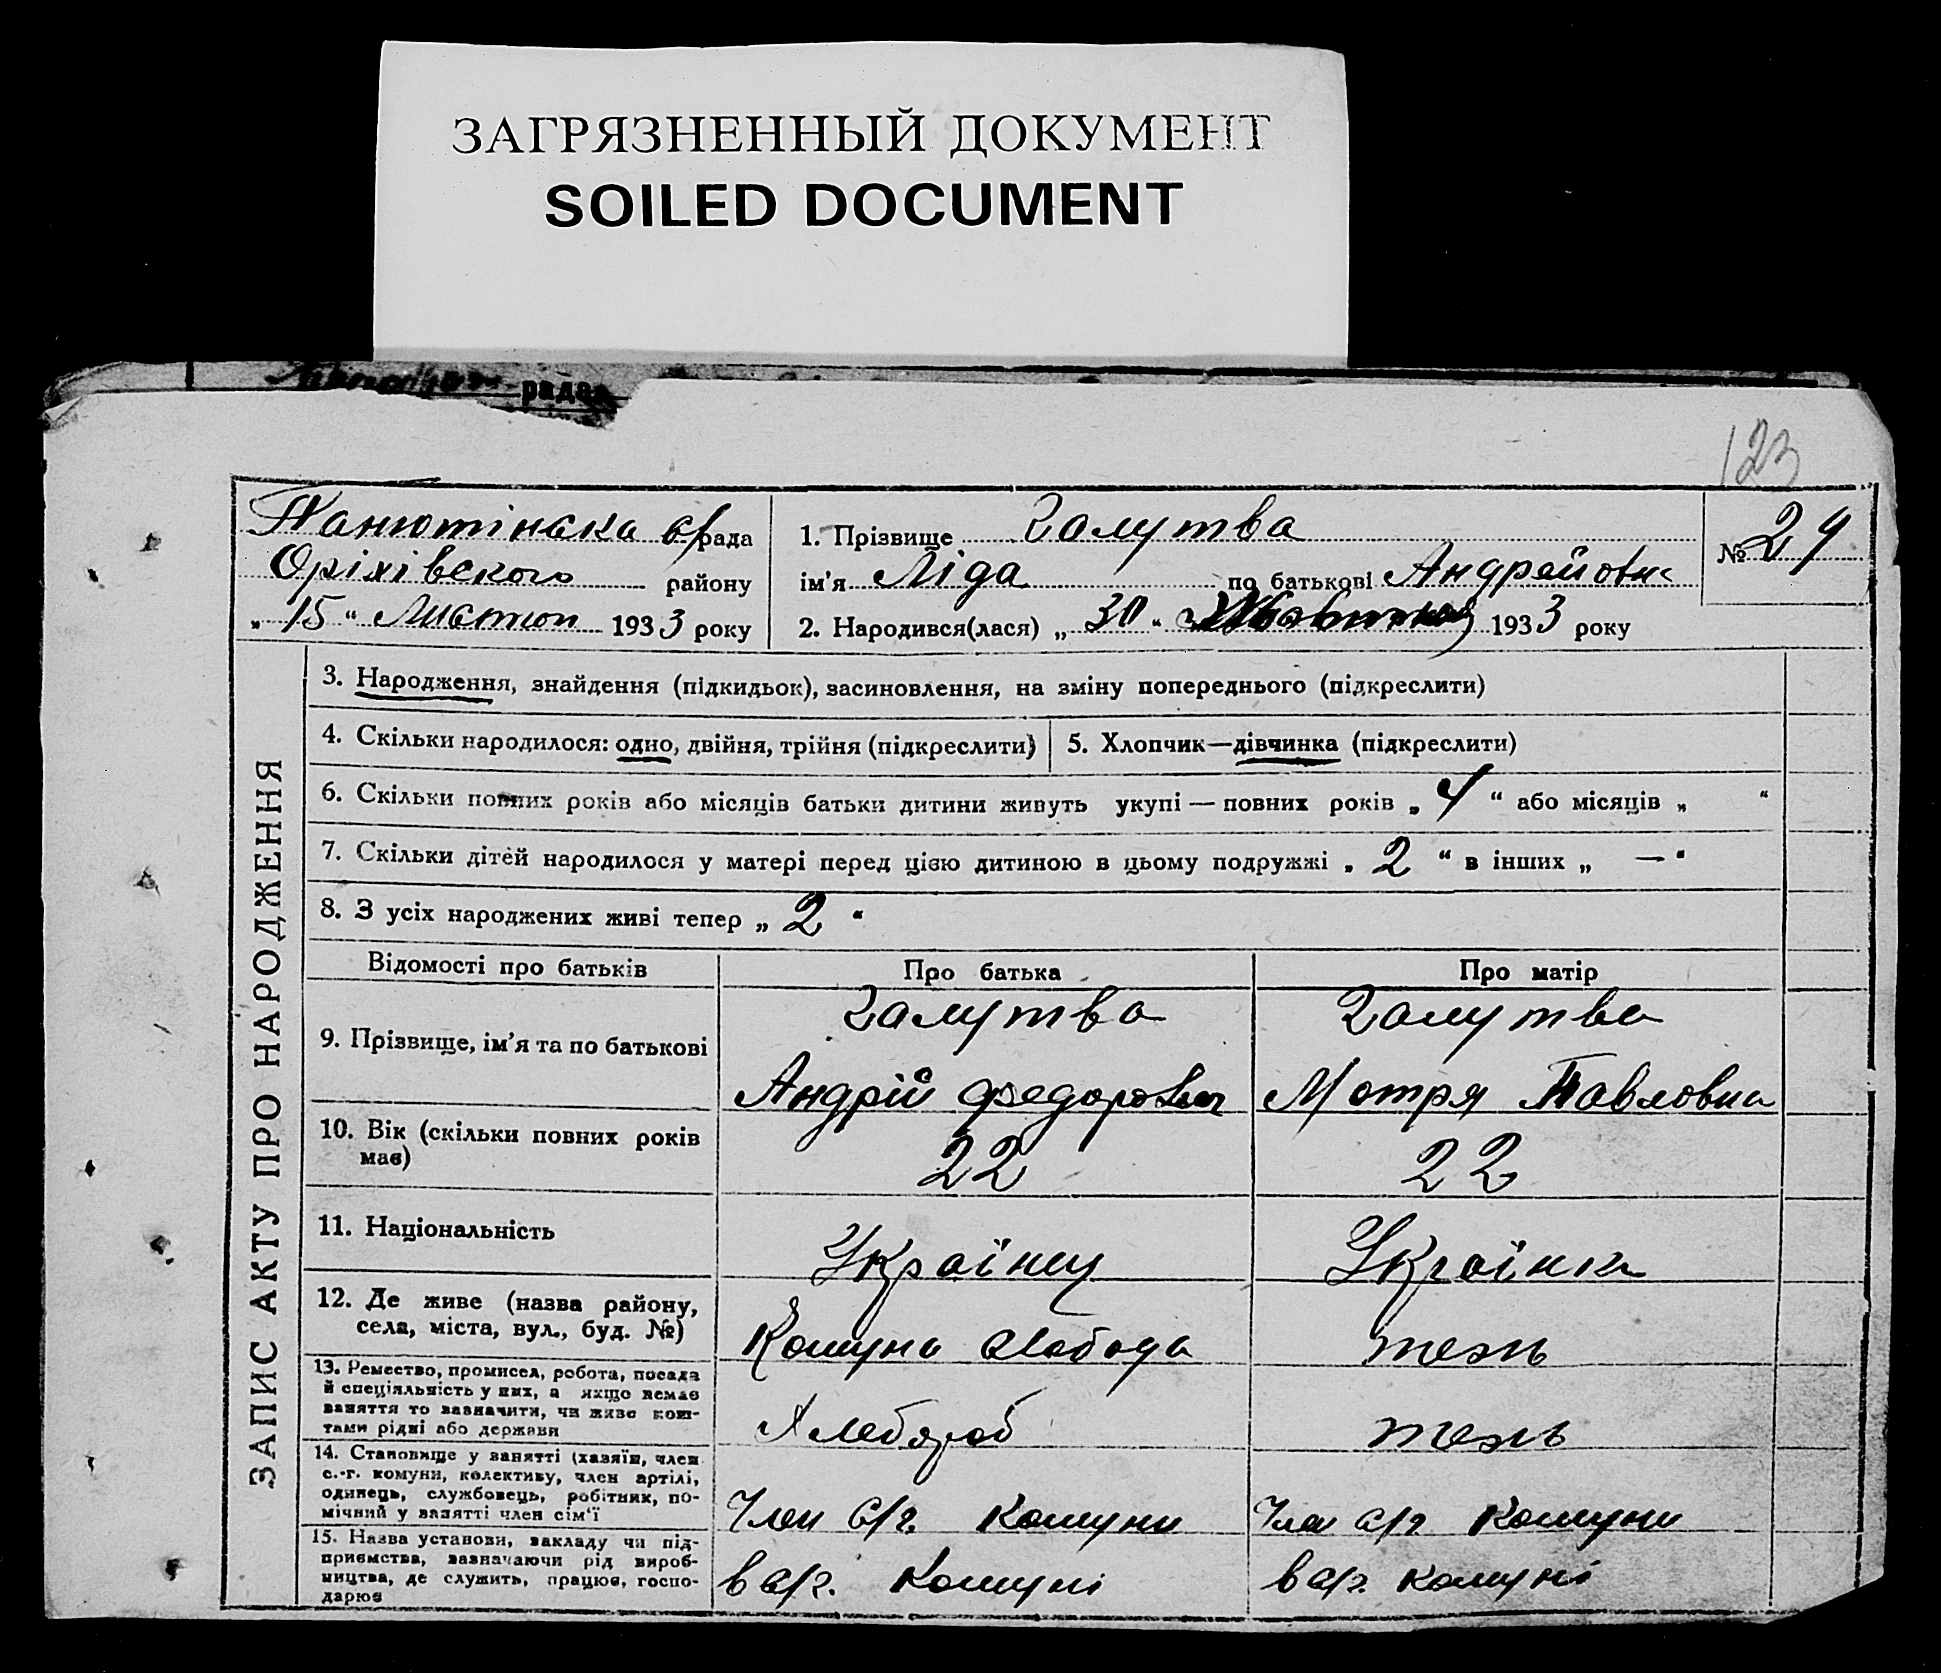 ЗАГРЯЗНЕННЫЙ ДОКУМЕНТ
SOILED DOCUMENT
рада
123
Панютінська с/рада
Оріхівского району
„ 15 “ Листоп 1933 року
1. Прізвище Галутва
ім'я Ліда по батькові Андрейовна
2. Народився(лася) „ 30 “ 1933 року
№ 29
ЗАПИС АКТУ ПРО НАРОДЖЕННЯ
3. Народження, знайдення (підкидьок), засиновлення, на зміну попереднього (підкреслити)
4. Скільки народилося: одно, двійня, трійня (підкреслити)
5. Хлопчик—дівчинка (підкреслити)
6. Скільки повних років або місяців батьки дитини живуть укупі — повних років „ 4 “ або місяців „ “
7. Скільки дітей народилося у матері перед цією дитиною в цьому подружжі „ 2 “ в інших „ — “
8. З усіх народжених живі тепер „ 2 “
Відомості про батьків
Про батька
Про матір
9. Прізвище, ім'я та по батькові
Галутва
Андрій Федорович
Галутва
Мотря Павловна
10. Вік (скільки повних років
має)
22
22
11. Національність
Українц
Українка
12. Де живе (назва району,
села, міста, вул., буд. №)
Комуна Слобода
тежь
13. Ремество, промисел, робота, посада
й спеціяльність у них, а якщо немає
заняття то зазначити, чи живе кош-
тами рідні або держави
Хлебороб
тежь
14. Становище у занятті (хазяїн, член
с.-г. комуни, колективу, член артілі,
одинець, службовець, робітник, по-
мічний у занятті член сім'ї
Член с/г. Комуни
Член с/г Комуни
15. Назва установи, закладу чи під-
приємства, зазначаючи рід вироб-
ництва, де служить, працює, госпо-
дарює
в с/г. Комуні
в с/г. Комуні